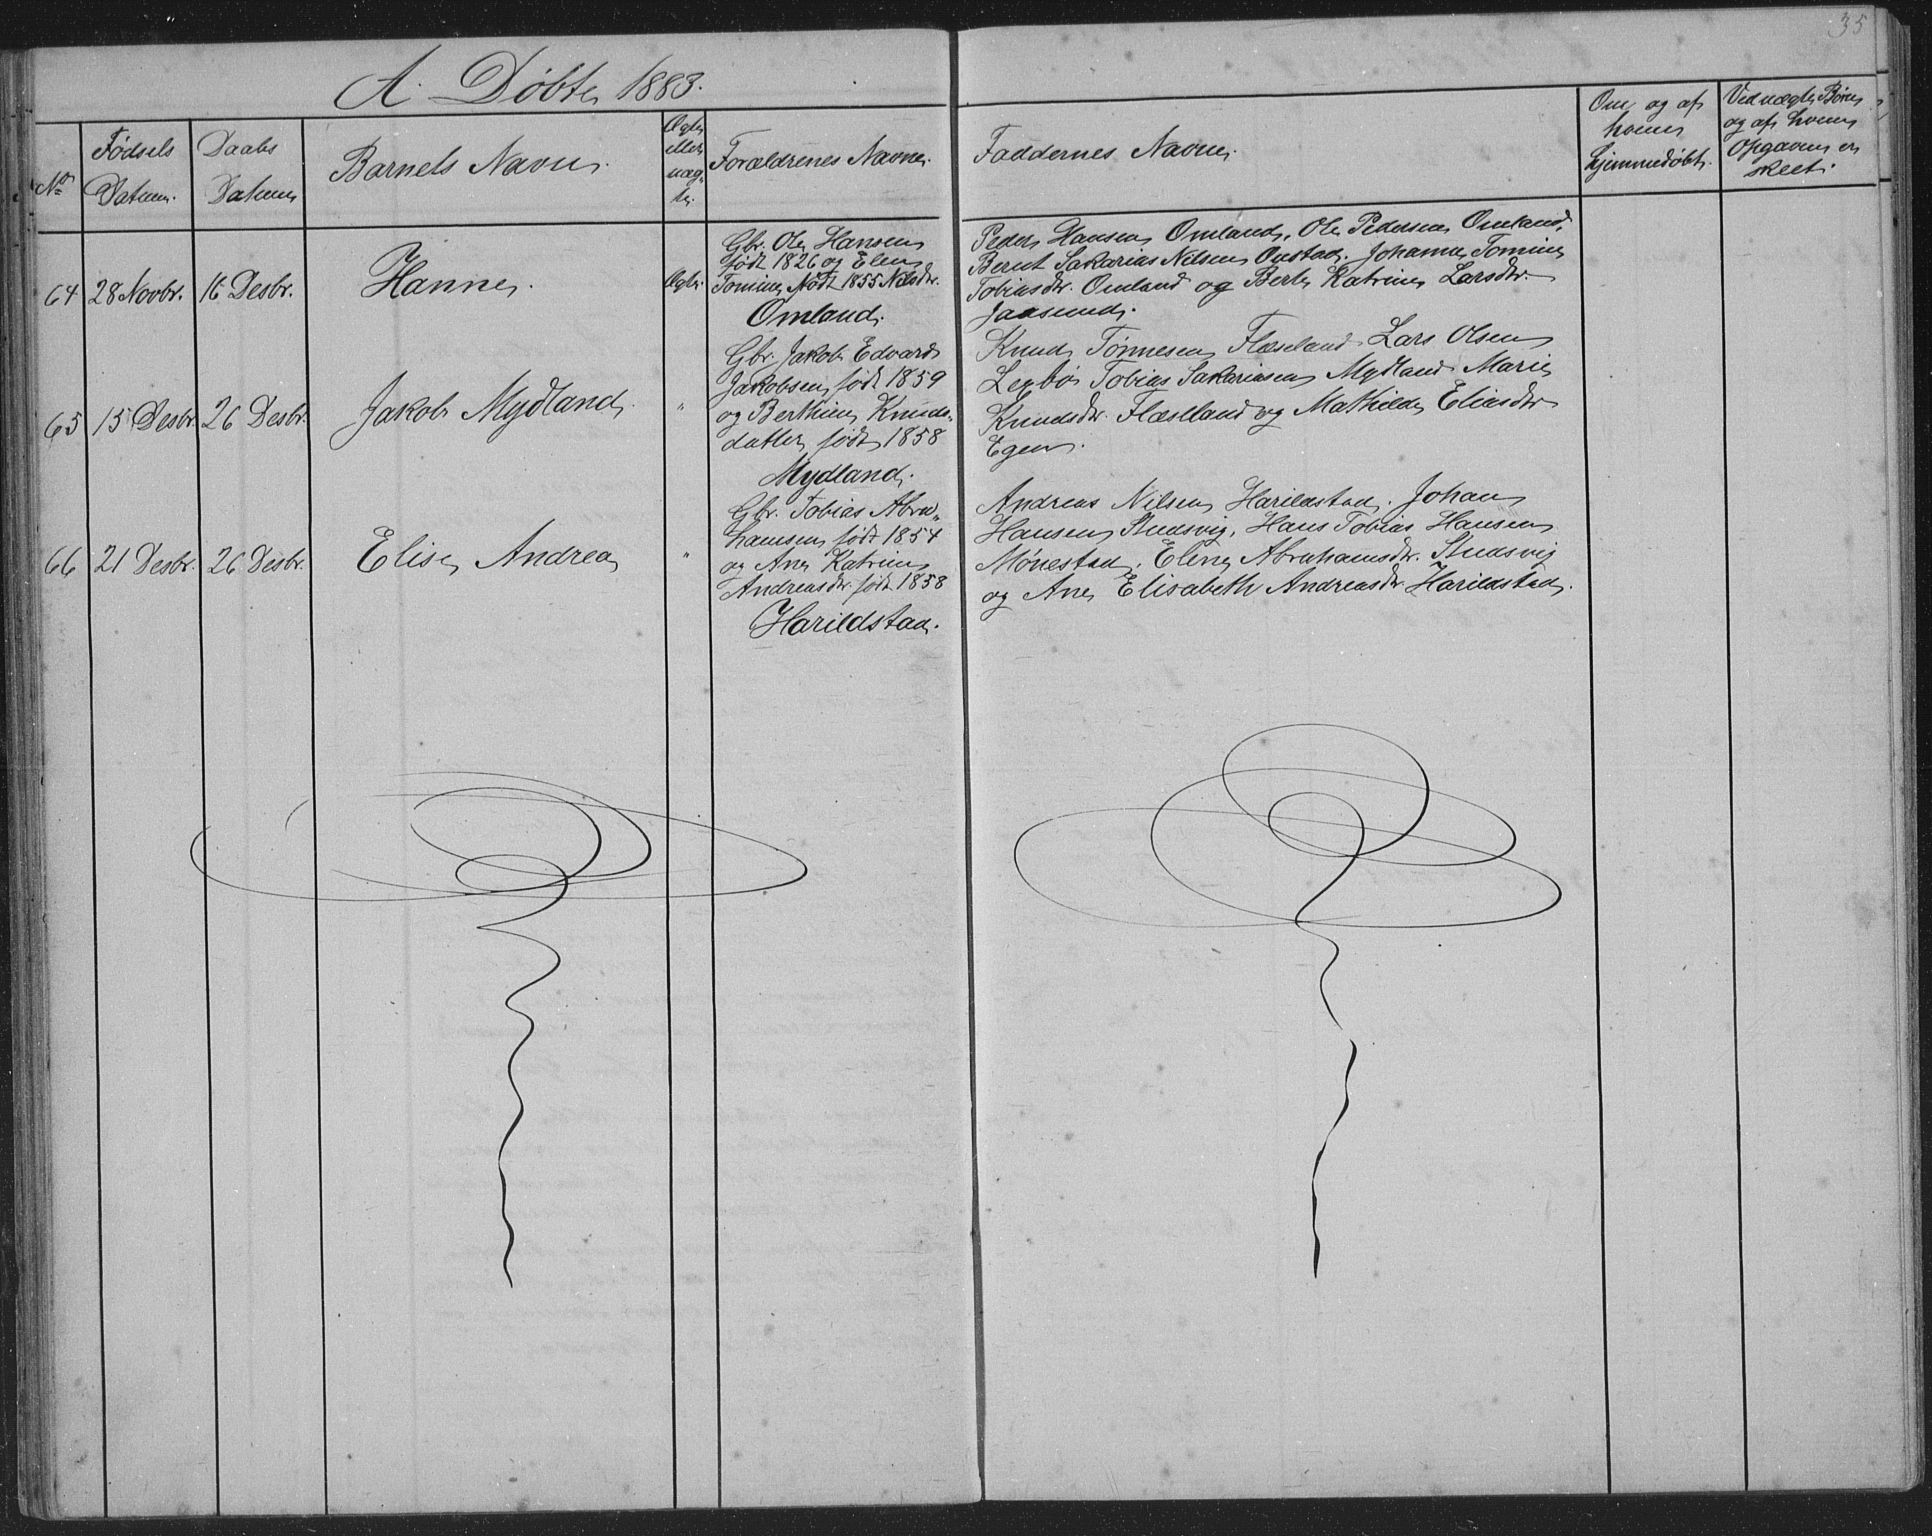 35
A. Døbte 1883.
No
Fødsels Datum.
Daabs Datum
Barnets Navn.
Ægte eller uægte.
Forældrenes Navne.
Faddernes Navne.
Om og af hvem hjemmedøbt.
Ved uægte Børn og af hvem Opgaven er skeet.
64 28 Novbr. 16 Desbr. Hanne. Ægte.
Gbr. Ole Hansen
født 1826 og Elen
Tomine født 1855 Nilsdtr.
Omland.
Peder Hansen Omland, Ole Pedersen Omland,
Bernt Sakarias Nilsen Onstad. Johanne Tomine
Tobiasdtr. Omland og Berte Katrine Larsdtr.
Jaasund.
65 15 Desbr. 26 Desbr. Jakob Mydland. "
Gbr. Jakob Edvard
Jakobsen født 1859
og Berthine Knuds-
datter født 1858
Mydland.
Knud Tønnesen Flæseland Lars Olsen
Tobias Sakariasen Mydland Marie
Knudsdtr. Flæseland og Mathilde Eliasdtr
Egen.
66 21 Desbr. 26 Desbr. Elise Andrea "
Gbr. Tobias Abra-
hamsen født 1854
og Ane Katrine
Andreasdtr. født 1858
Harildstad.
Andreas Nilsen Harildstad. Johan
Hansen Studsvig, Hans Tobias Hansen
Mønestad, Eline Abrahamsdtr. Studsvig
og Ane Elisabeth Andreasdtr. Harildstad.